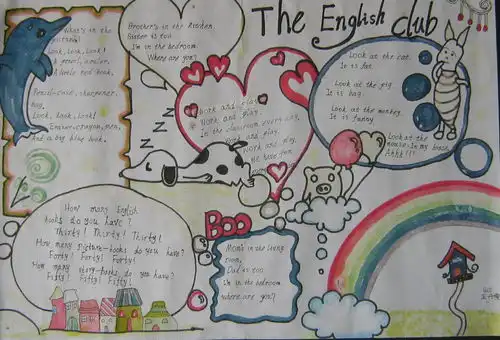 The English club
What's in the
Look, Look, Look!
A pencil, ruler,
A lovely red book.
Pencil-case, sharpener,
bag.
Look, Look, Look!
Eraser, crayon, pen,
And a big blue book.
Brother's in the kitchen.
Sister is too.
I'm in the bedroom.
Where are you?
Work and play.
Work and play.
In the classroom every day.
Work and play.
Work and play,
We have fun
Look at the cat.
It is fat.
Look at the pig.
It is big.
Look at the monkey.
It is funny
Look at the
mouse. In my house,
Ahhh!!!
Z Z Z Z
How many English
books do you have?
Thirty! Thirty! Thirty!
How many picture-books do you have?
Forty! Forty! Forty!
How many story-books do you have?
Fifty! Fifty! Fifty!
Boo
Mom's in the living
room,
Dad is too.
I'm in the bedroom
where are you?